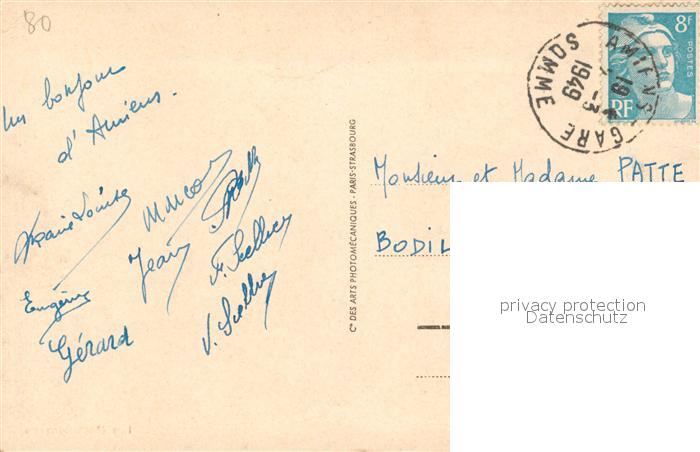 80
Un bonjour
d'Amiens.
Marie Louise
Eugénie
Gérard
Jean
V. Sellier
Cie DES ARTS PHOTOMÉCANIQUES - PARIS-STRASBOURG
8F
POSTES
RF
AMIENS-GARE
1949
SOMME
Monsieur et Madame PATTE
BODIL
privacy protection
Datenschutz